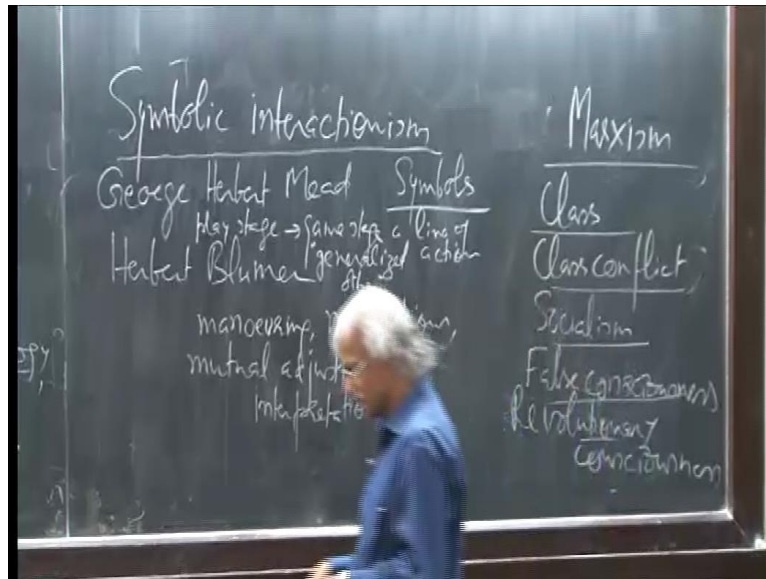 Symbolic interactionism
George Herbert Mead Symbols
play stage → game stage a line of
generalized action
Herbert Blumer
manoevering,
mutual
Marxism
Class
Class conflict,
Socialism
False consciousness
Revolutionary
consciousness